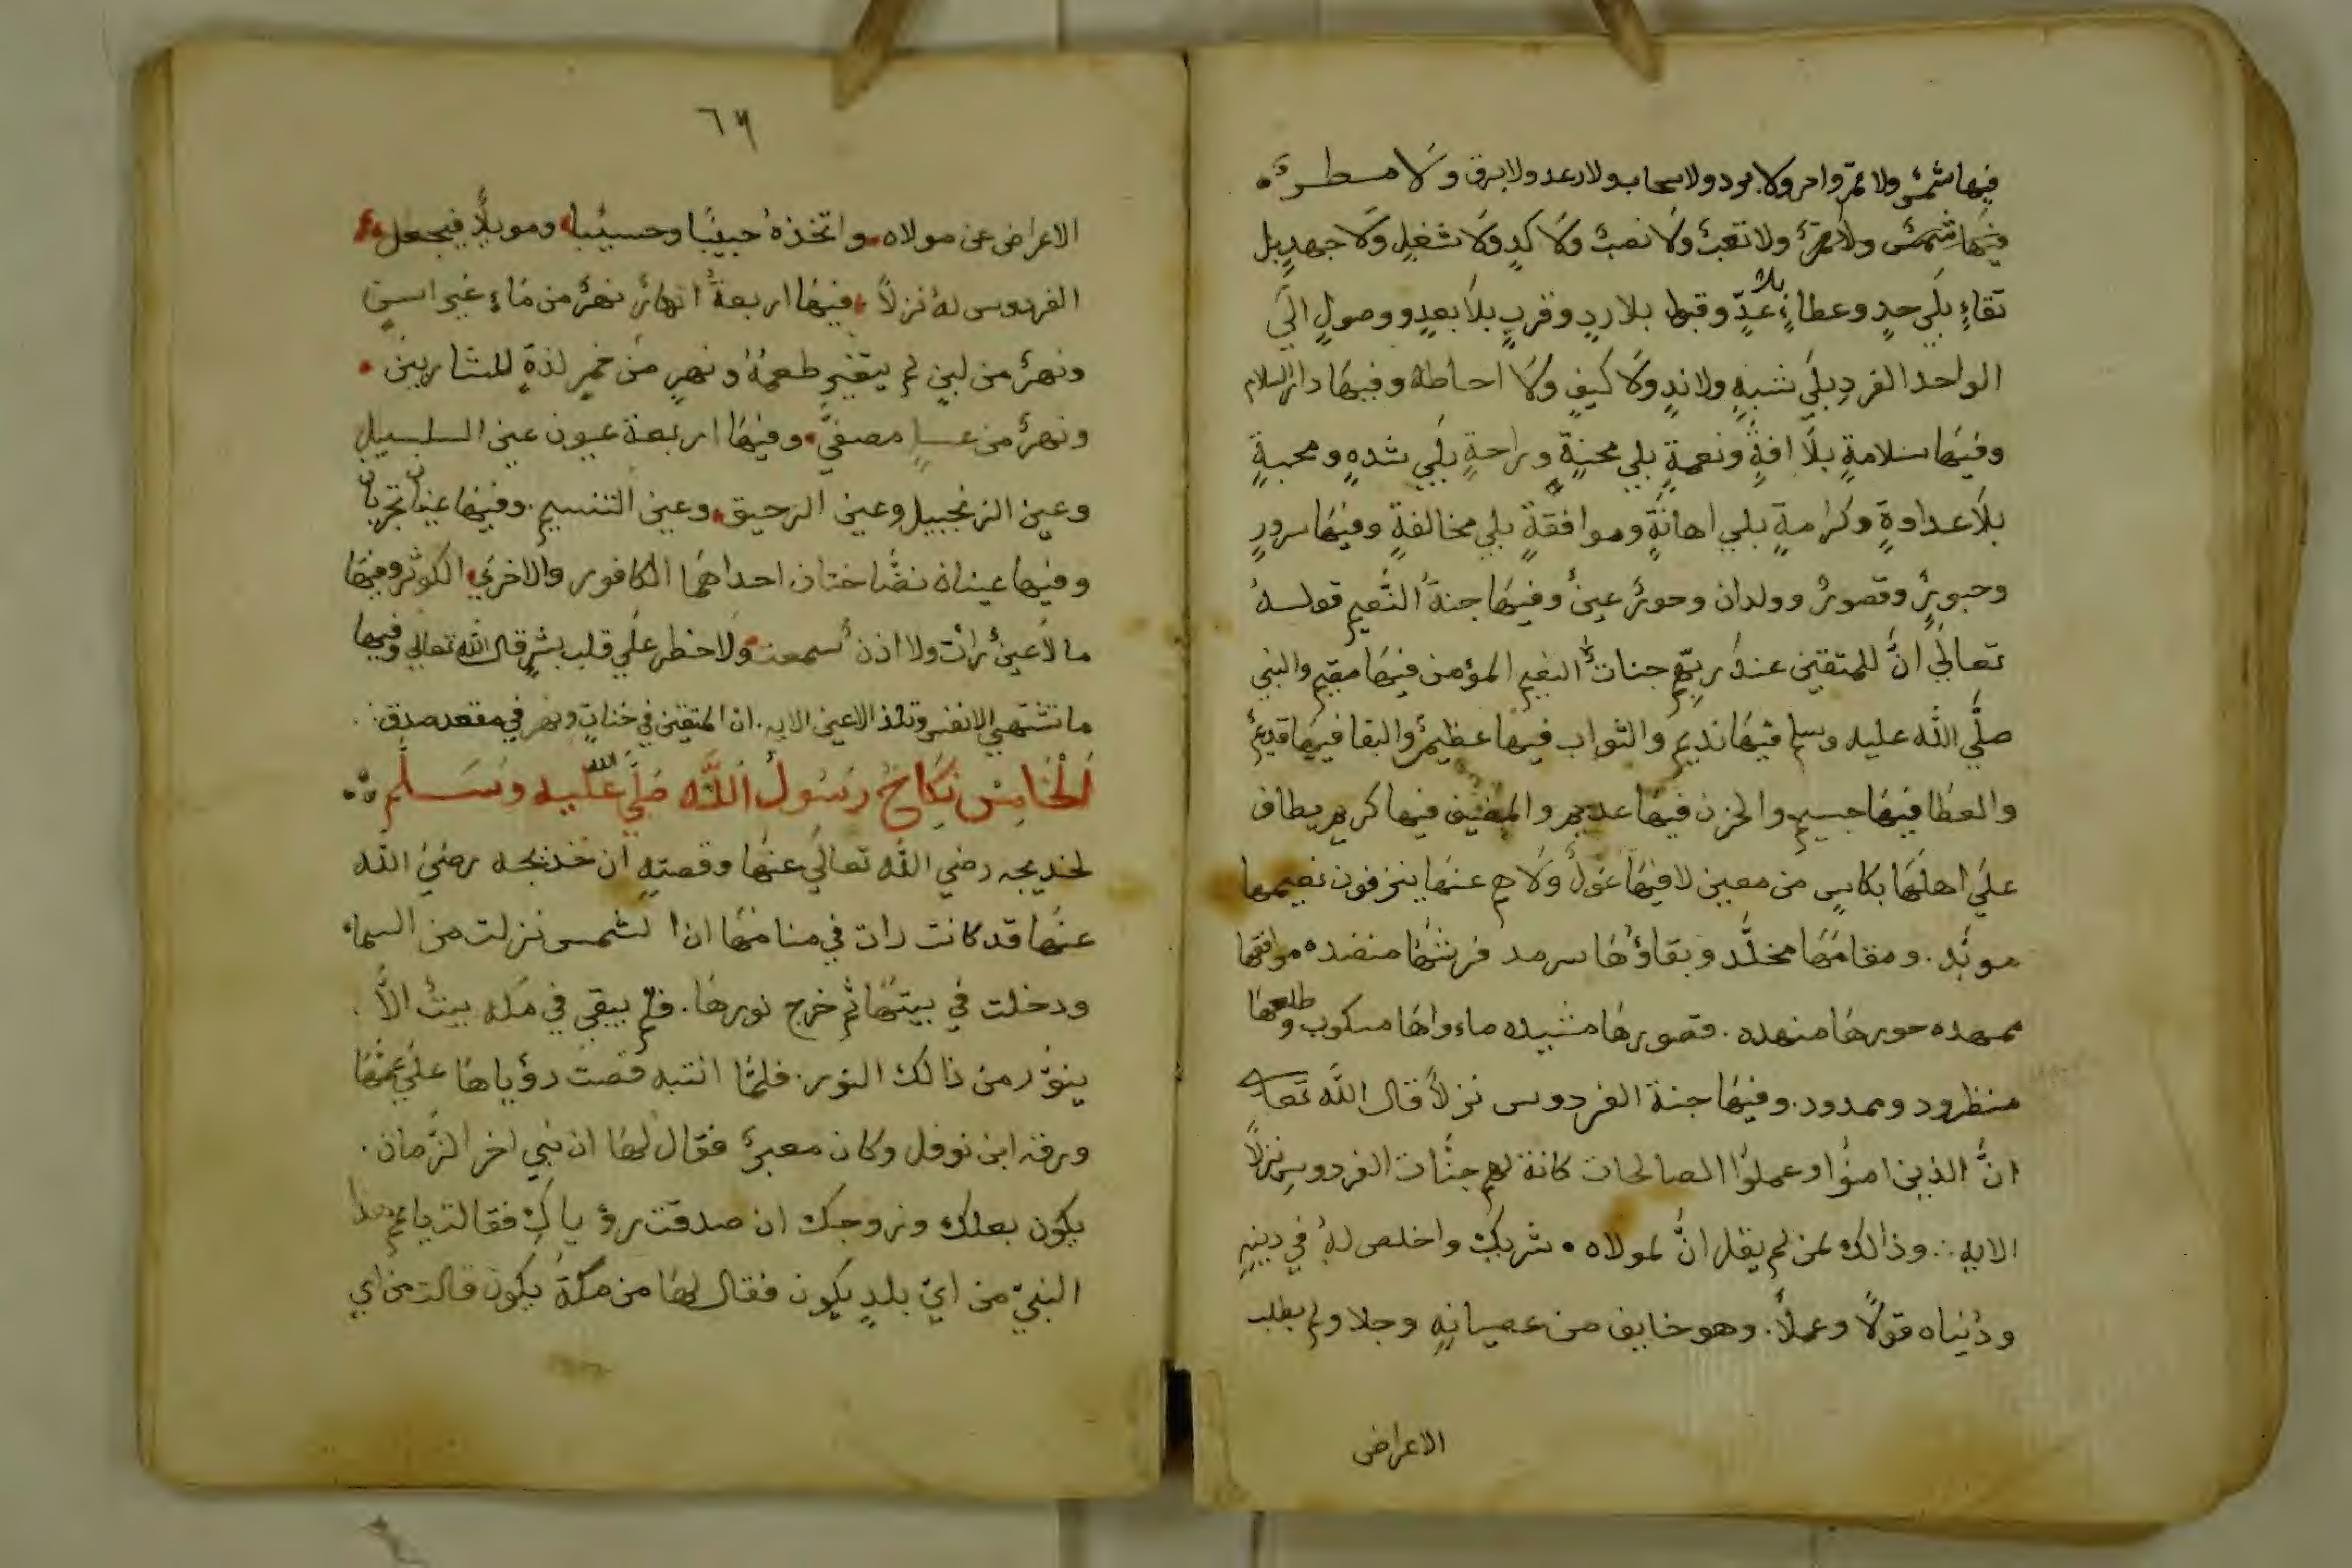 فيها شمس ولا قمر ولا حر ولا برد ولا سحاب ولا رعد ولا برق ولا مطر
فيها شمس ولا ولا تعب ولا نصب ولا كد ولا شغل ولا جهد بل
بقاء بلي حد وعطاء بلا عد وقبول بلا رد وقرب بلا بعد ووصول الي
الواحد الفرد بلي شبه ولا ند ولا كيف ولا احاطه وفيها دار السلام
وفيها سلامة بلا افة ونعمة بلي محنة وراحة بلي شده ومحبة
بلا عداوة وكرامة بلي اهانة وموافقة بلي مخالفة وفيها سرور
وحبور وقصور وولدان وحور عين وفيها جنة النعيم قوله
تعالي ان للمتقين عند ربهم جنات النعيم المؤمن فيها مقيم والنبي
صلي الله عليه وسلم فيها نديم والثواب فيها عظيم والبقا فيها قديم
والعطا فيها جسيم والحزن فيها عديم والمضيف فيها كريم يطاف
علي اهلها بكاس من معين لا فيها غول ولا هم عنها ينزفون نعيمها
موبد. ومقامها مخلد وبقاؤها سرمد فرشها منضده مرافقها
ممهده حورها منهده. قصورها مشيده ماءواها مسكوب وطلعها
منظرود وممدود. وفيها جنة الفردوس نزلا قال الله تعالي
ان الذين امنوا وعملوا الصالحات كانة لهم جنات الفردوس نزلا
الايه ∴ وذالك لمن لم يقل ان لمولاه شريك واخلص له في دينه
ودنياه قولا وعملا. وهو خايف من عصيانه وجلا ولم يطلب
الاعراض
٦٦
الاعراض عن مولاه واتخذه حبيبا وحسيبا وموبلا فيجعل
الفردوس له نزلا فيها اربعة انهار نهر من ماء غير اسن
ونهر من لبن لم يتغير طعمه ونهر من خمر لذة للشاربين
ونهر من عسل مصفي وفيها اربعة عيون عين السلسبيل
وعين الزنجبيل وعين الرحيق وعين التنسيم. وفيها عينان تجريان
وفيها عينان نضاختان احداهما الكافور والاخري الكوثر وفيها
ما لا عين رات ولا اذن سمعت ولا خطر علي قلب بشر قال الله تعالي وفيها
ما تشتهي الانفس وتلذ الاعين الايه. ان المتقين في جنات ونهر في مقعد صدق
الخامس نكاح رسول الله صلي الله عليه وسلم
لخديجه رضي الله تعالي عنها وقصته ان خديجه رضي الله
عنها قد كانت رات في منامها ان الشمس نزلت من السماء
ودخلت في بيتها ثم خرج نورها. فلم يبقي في مكه بيت الا
ينور من ذالك النور. فلما انتبه قصت رؤياها علي عمها
ورقه ابن نوفل وكان معبر فقال لها ان نبي اخر الزمان.
يكون بعلك وزوجك ان صدقت رؤياك فقالت يا عم هذا
النبي من اي بلد يكون فقال لها من مكة يكون قالت من اي